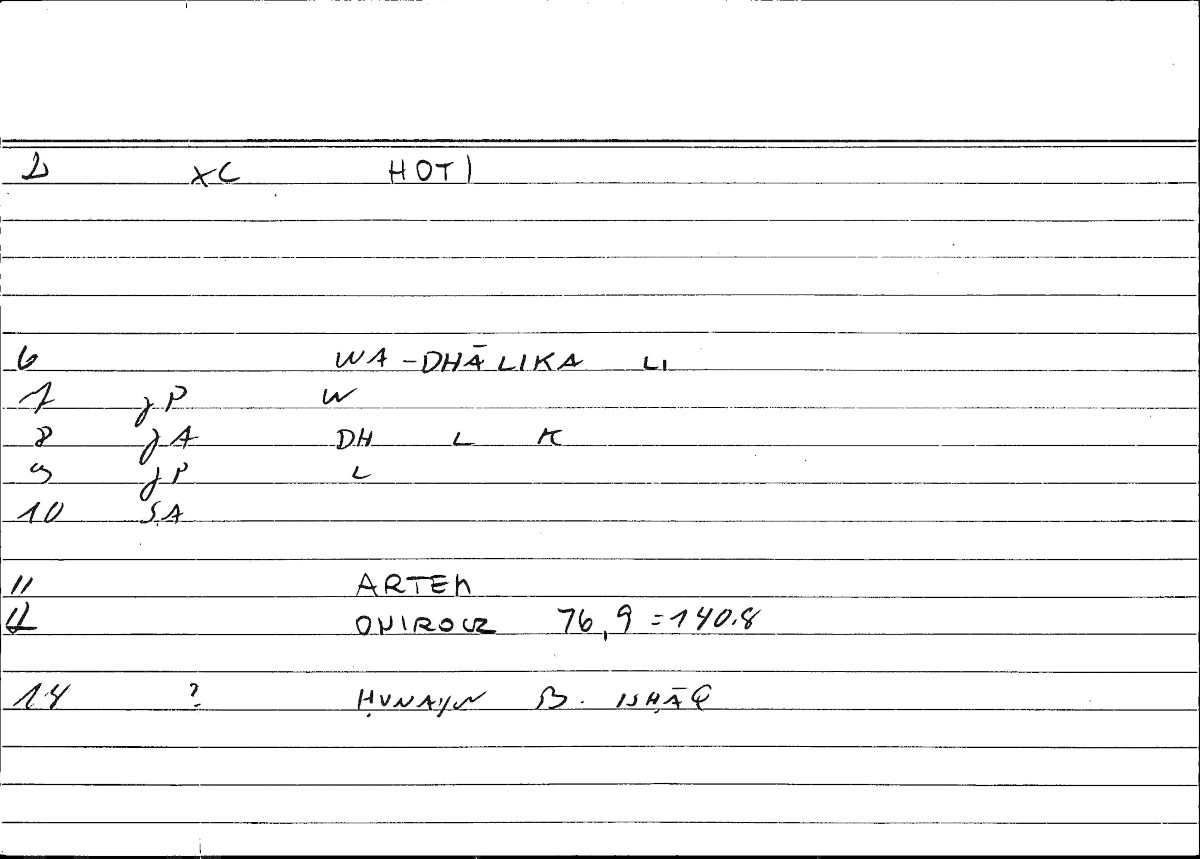 2 XC HOTI
6 WA-DHĀLIKA LI
7 JP W
8 JA DH L K
9 JP L
10 ṢA
11 ARTEM
12 ONIROCR 76,9 = 140.8
14 ? ḤUNAYN B. ISḤĀQ